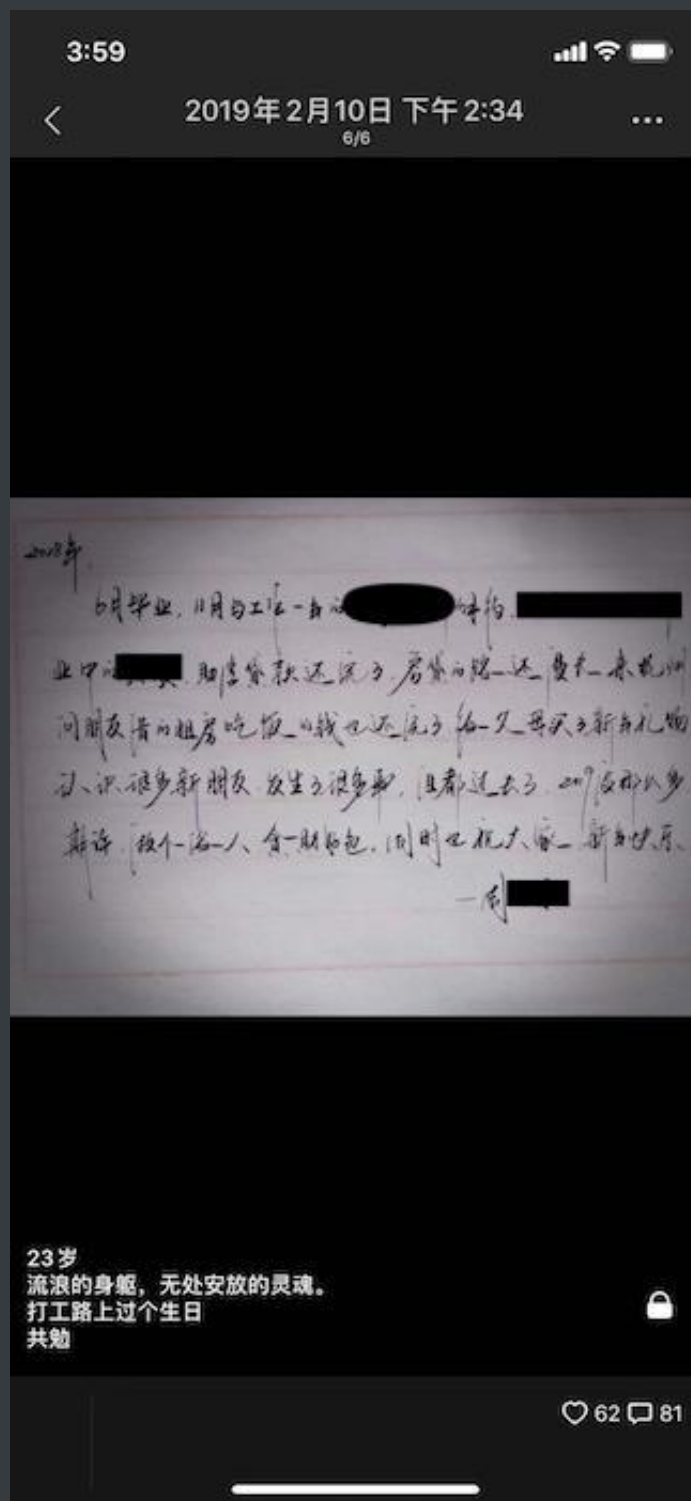 3:59
2019年2月10日 下午2:34
6/6
2018年
6月毕业,11月与工作一年的 解约,
业中的 助学贷款还完了,房贷的钱还
问朋友借的租房吃饭的钱也还完了 给父母买了新年礼物
认识很多新朋友 发生了很多事,但都过去了,2019没那么多
期许,做个俗人、贪财好色,同时也祝大家新年快乐、
一周
23岁
流浪的身躯，无处安放的灵魂。
打工路上过个生日
共勉
62 81